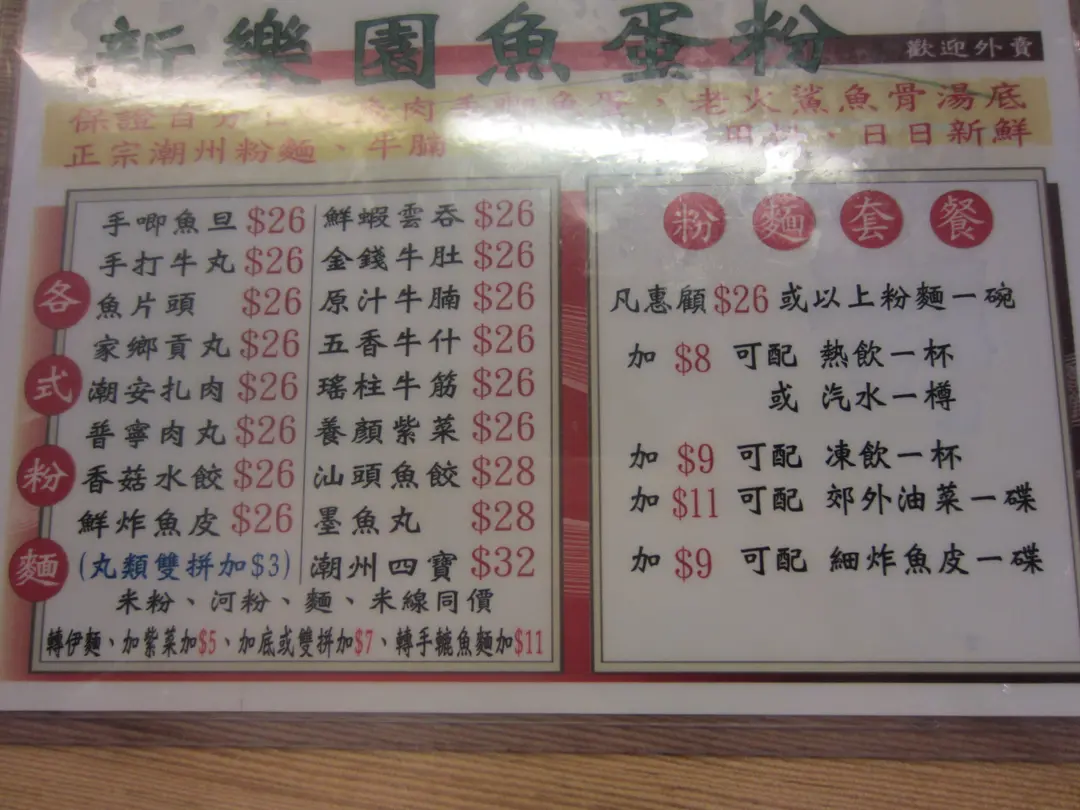 新樂園魚蛋粉
歡迎外賣
保證百分 魚肉手唧魚蛋、老火鯊魚骨湯底
正宗潮州粉麵、牛腩 、日日新鮮
各式粉麵
手唧魚旦 $26
手打牛丸 $26
魚片頭 $26
家鄉貢丸 $26
潮安扎肉 $26
普寧肉丸 $26
香菇水餃 $26
鮮炸魚皮 $26
(丸類雙拼加$3)
鮮蝦雲吞 $26
金錢牛肚 $26
原汁牛腩 $26
五香牛什 $26
瑤柱牛筋 $26
養顏紫菜 $26
汕頭魚餃 $28
墨魚丸 $28
潮州四寶 $32
米粉、河粉、麵、米線同價
轉伊麵、加紫菜加$5、加底或雙拼加$7、轉手轆魚麵加$11
粉麵套餐
凡惠顧$26或以上粉麵一碗
加 $8 可配 熱飲一杯
或 汽水一樽
加 $9 可配 凍飲一杯
加 $11 可配 郊外油菜一碟
加 $9 可配 細炸魚皮一碟